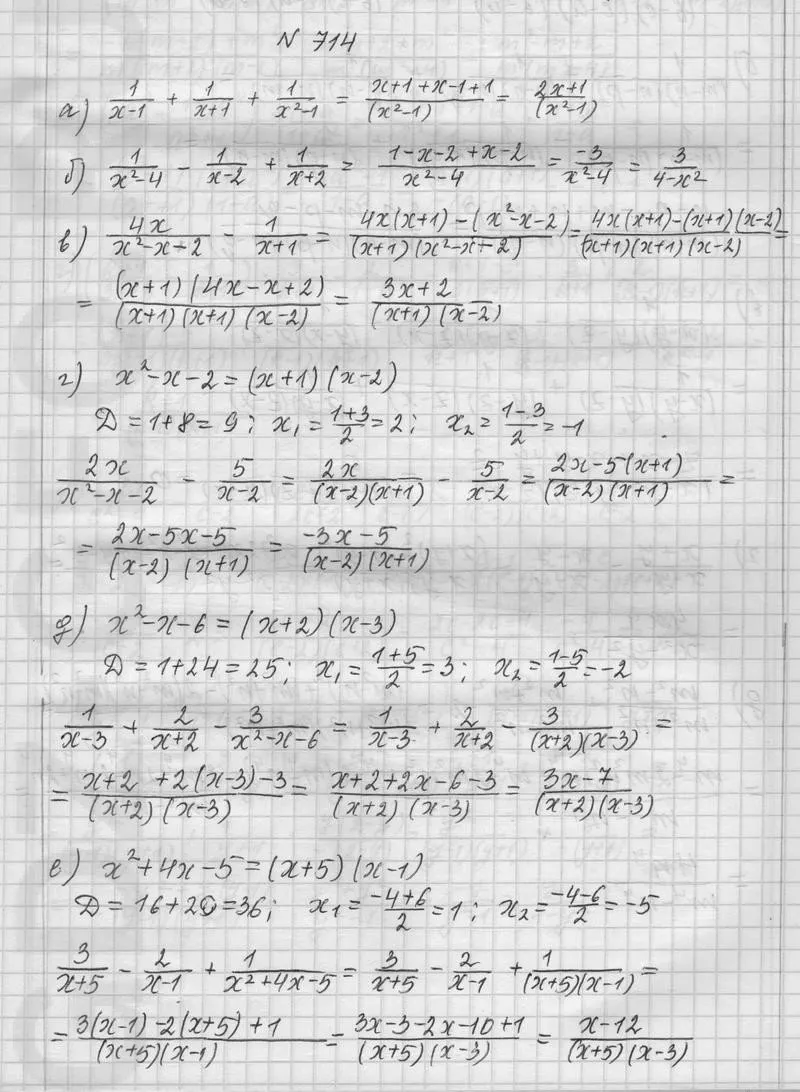 N 714
а) 1/(x-1) + 1/(x+1) + 1/(x²-1) = (x+1+x-1+1)/(x²-1) = (2x+1)/(x²-1)
б) 1/(x²-4) - 1/(x-2) + 1/(x+2) = (1-x-2+x-2)/(x²-4) = -3/(x²-4) = 3/(4-x²)
в) 4x/(x²-x-2) - 1/(x+1) = (4x(x+1)-(x²-x-2))/((x+1)(x²-x-2)) = (4x(x+1)-(x+1)(x-2))/((x+1)(x+1)(x-2)) =
= ((x+1)(4x-x+2))/((x+1)(x+1)(x-2)) = (3x+2)/((x+1)(x-2))
г) x²-x-2=(x+1)(x-2)
D=1+8=9; x₁=(1+3)/2=2; x₂=(1-3)/2=-1
2x/(x²-x-2) - 5/(x-2) = 2x/((x-2)(x+1)) - 5/(x-2) = (2x-5(x+1))/((x-2)(x+1)) =
= (2x-5x-5)/((x-2)(x+1)) = (-3x-5)/((x-2)(x+1))
д) x²-x-6=(x+2)(x-3)
D=1+24=25; x₁=(1+5)/2=3; x₂=(1-5)/2=-2
1/(x-3) + 2/(x+2) - 3/(x²-x-6) = 1/(x-3) + 2/(x+2) - 3/((x+2)(x-3)) =
= (x+2+2(x-3)-3)/((x+2)(x-3)) = (x+2+2x-6-3)/((x+2)(x-3)) = (3x-7)/((x+2)(x-3))
е) x²+4x-5=(x+5)(x-1)
D=16+20=36; x₁=(-4+6)/2=1; x₂=(-4-6)/2=-5
3/(x+5) - 2/(x-1) + 1/(x²+4x-5) = 3/(x+5) - 2/(x-1) + 1/((x+5)(x-1)) =
= (3(x-1)-2(x+5)+1)/((x+5)(x-1)) = (3x-3-2x-10+1)/((x+5)(x-3)) = (x-12)/((x+5)(x-3))